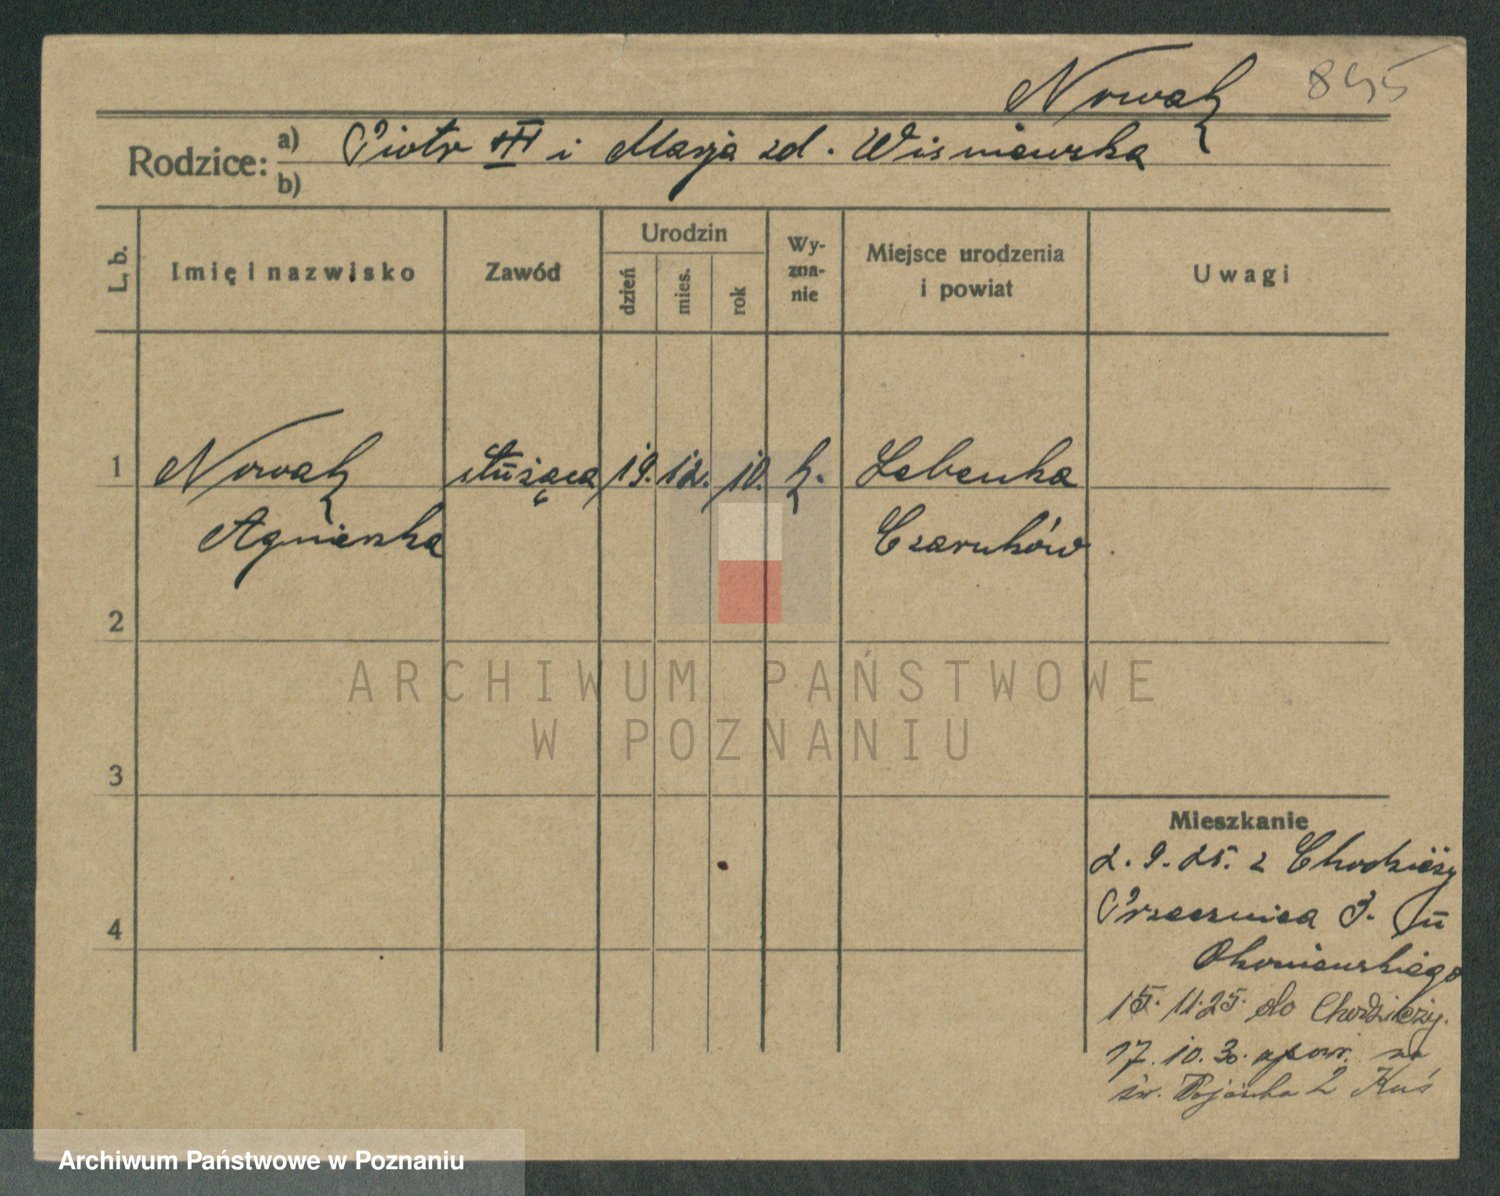 Nowak 845
Rodzice: a) Piotr III i Marja zd. Wiśniewska
b)
L. b. Imię i nazwisko Zawód Urodzin dzień mies. rok Wyznanie Miejsce urodzenia i powiat Uwagi
1 Nowak służąca 19. 12. 10. k. Lebenka
Agnieszka Czarnków
2
ARCHIWUM PAŃSTWOWE
W POZNANIU
3
Mieszkanie
2. 9. 25. z Chodzieży
Przecznica 3.
4
Okoniewskiego
15. 11. 25. do Chodzieży.
17. 10. 30.
św. 2 Kuś
Archiwum Państwowe w Poznaniu